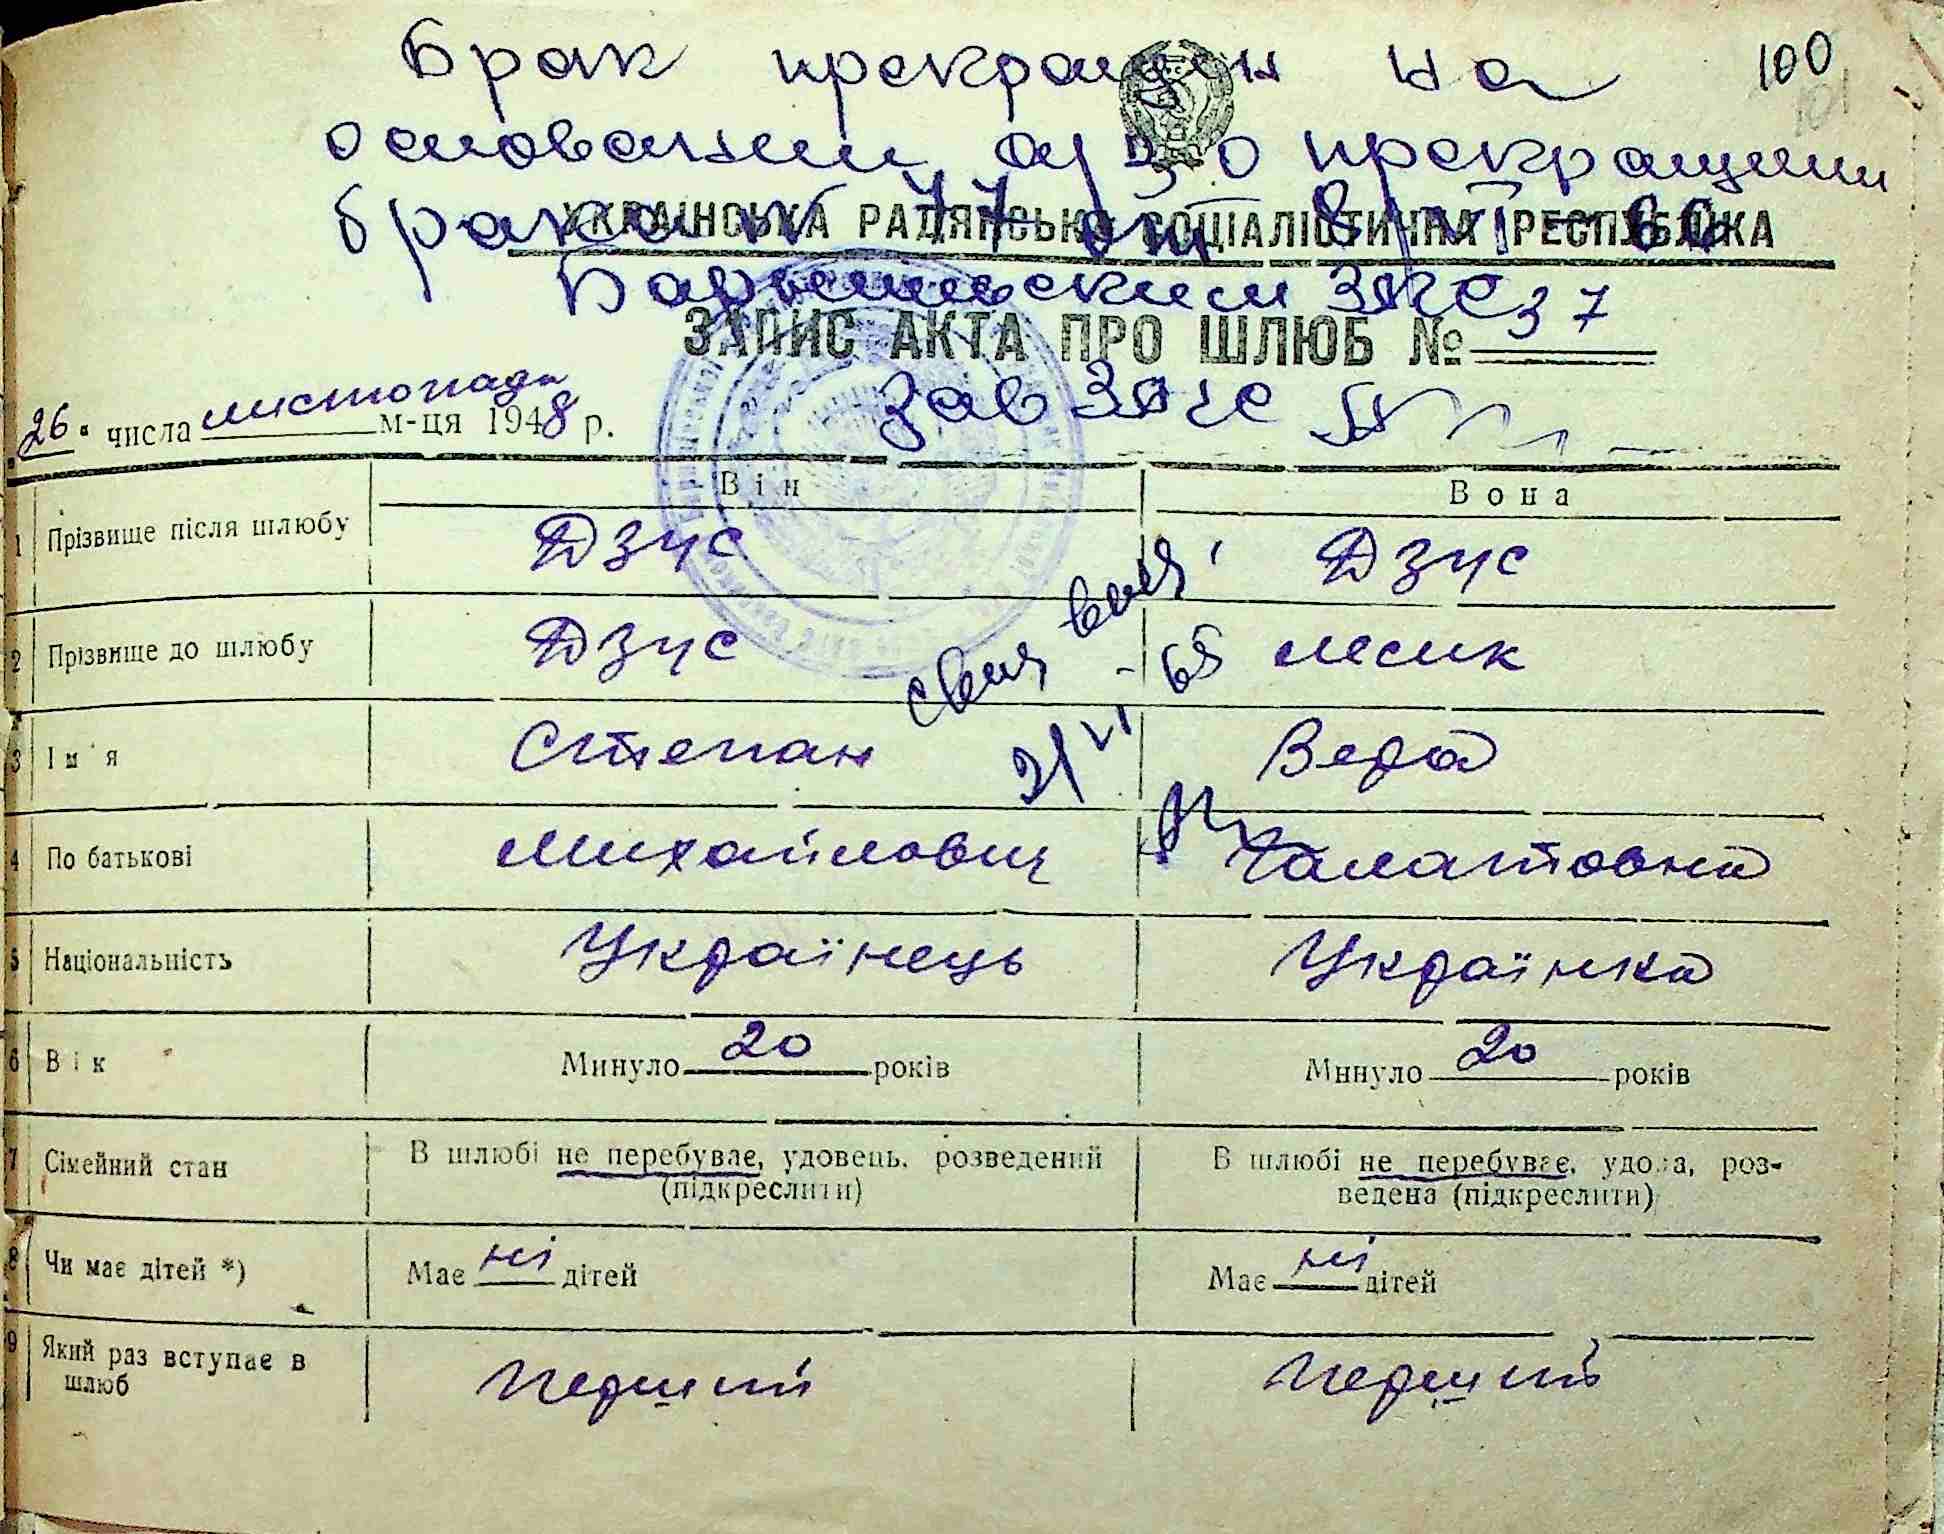 100
101
Брак прекращен на
основании а/з о прекращении
брака № 77 от 8/VI-66
Барышевским ЗАГС
УКРАЇНСЬКА РАДЯНСЬКА СОЦІАЛІСТИЧНА РЕСПУБЛІКА
ЗАПИС АКТА ПРО ШЛЮБ № 37
Зав ЗАГС
"26" числа листопада м-ця 1948 р.
Він Вона
1 Прізвище після шлюбу Дзус Дзус
2 Прізвище до шлюбу Дзус Лесик
3 Ім'я Степан Вера
4 По батькові Михайлович
5 Національність Українець Українка
6 Вік Минуло 20 років Минуло 20 років
7 Сімейний стан В шлюбі не перебуває, удовець, розведений (підкреслити) В шлюбі не перебуває, удова, роз-
ведена (підкреслити)
8 Чи має дітей *) Має ні дітей Має ні дітей
9 Який раз вступає в
шлюб Перший Перший